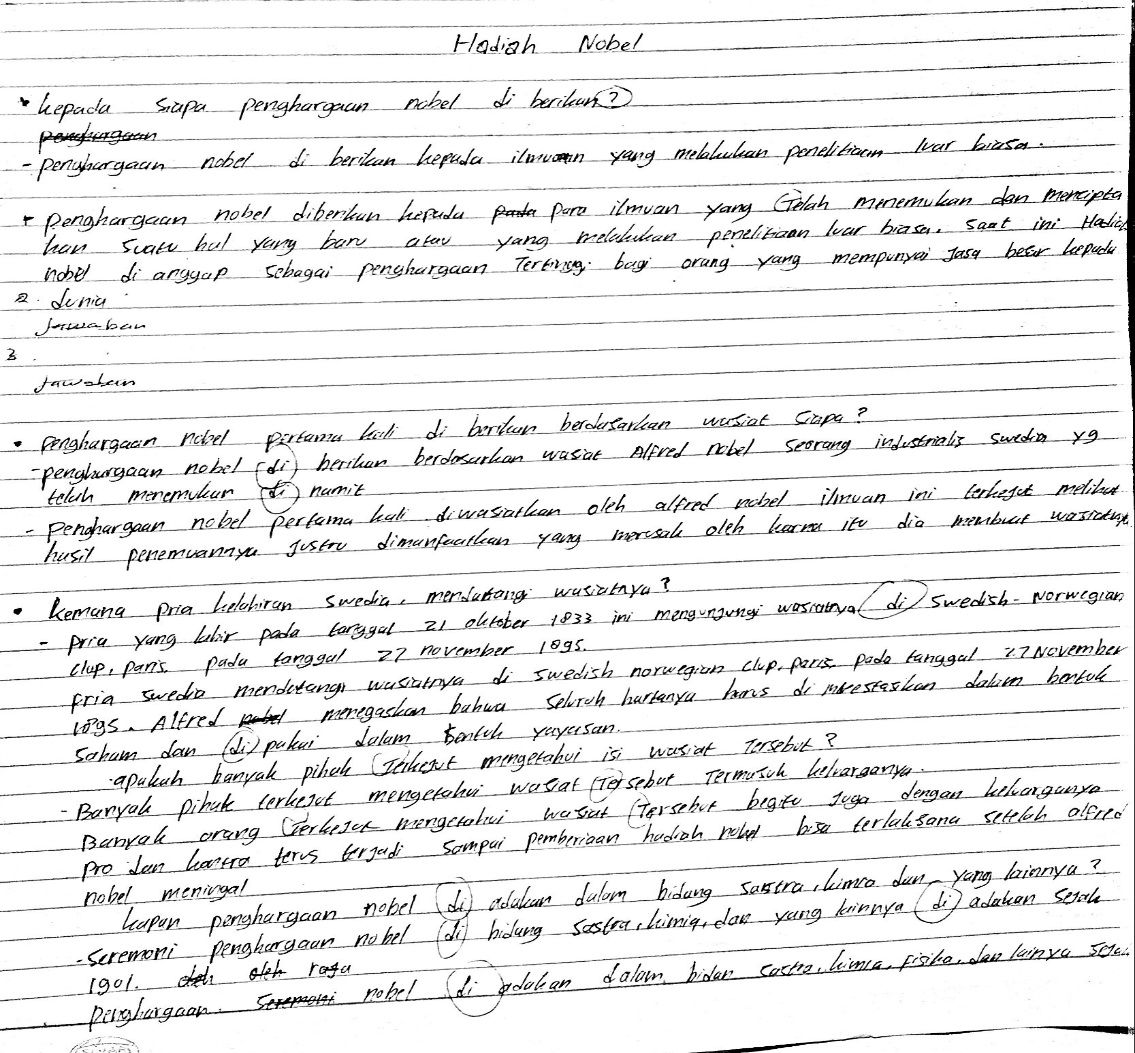 Hadiah Nobel
• kepada siapa penghargaan nobel di berikan ?
penghargaan
- penghargaan nobel di berikan kepada ilmuan yang melakukan penelitiaan luar biasa.
+ Penghargaan nobel diberikan kepada pada para ilmuan yang Telah menemukan dan mencipta
kan suatu hal yang baru atau yang melakukan penelitiaan luar biasa. saat ini Hadiah
nobel di anggap sebagai penghargaan Tertinggi bagi orang yang mempunyai Jasa besar kepada
2. dunia
Jawaban
3.
Jawaban
• Penghargaan nobel pertama kali di berikan berdasarkan wasiat siapa ?
- penghargaan nobel di berikan berdasarkan wasiat Alfred nobel seorang industrialis swedia yg
telah menemukan di namit
- Penghargaan nobel pertama kali diwasiatkan oleh alfred nobel ilmuan ini terkejut melihat
hasil penemuannya Justru dimanfaatkan yang merusak oleh karna itu dia membuat wasiatnya
• Kemana pria kelahiran swedia, mendatangi wasiatnya ?
- pria yang lahir pada tanggal 21 oktober 1833 ini mengunjungi wasiatnya di swedish - Norwegian
clup, paris. pada tanggal 27 november 1895.
Pria swedia mendatangi wasiatnya di swedish norwegian clup, paris. pada tanggal 27 November
1895. Alfred nobel menegaskan bahwa seluruh hartanya harus di investasikan dalam bentuk
saham dan di pakai dalam bentuk yayasan.
. apakah banyak pihak Terkejut mengetahui isi wasiat Tersebut ?
- Banyak pihak terkejut mengetahui wasiat Tersebut Termasuk keluarganya.
Banyak orang Terkejut mengetahui wasiat Tersebut begitu Juga dengan keluarganya
Pro dan kontra terus terjadi sampai pemberiaan hadiah nobel bisa terlaksana setelah alfred
nobel meningal
kapan penghargaan nobel di adakan dalam bidang sastra, kimia dan yang lainnya ?
- Seremoni penghargaan nobel di bidang sastra, kimia, dan yang lainnya di adakan sejak
1901. oleh oleh raja
Penghargaan Seremoni nobel di adakan dalam bidan sastra, kimia, fisika, dan lainya sejak